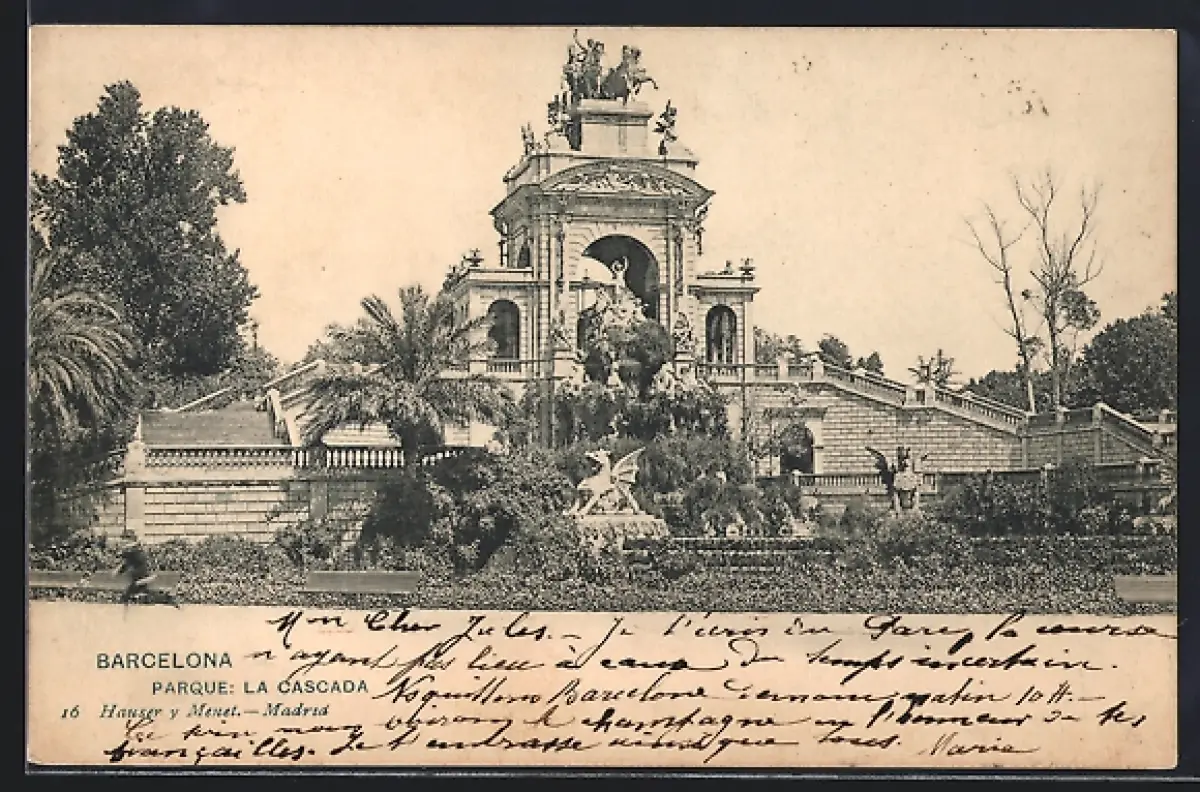 Mon Cher Jules. – Je t'écris du Parc, la course
n'ayant pas lieu à cause du temps incertain.
BARCELONA
PARQUE: LA CASCADA
Nous quittons Barcelone demain matin 10 H. –
16 Hauser y Menet. – Madrid
Ce soir nous boirons le champagne en l'honneur de tes
françailles. Je t'embrasse ainsi que tous. Marie